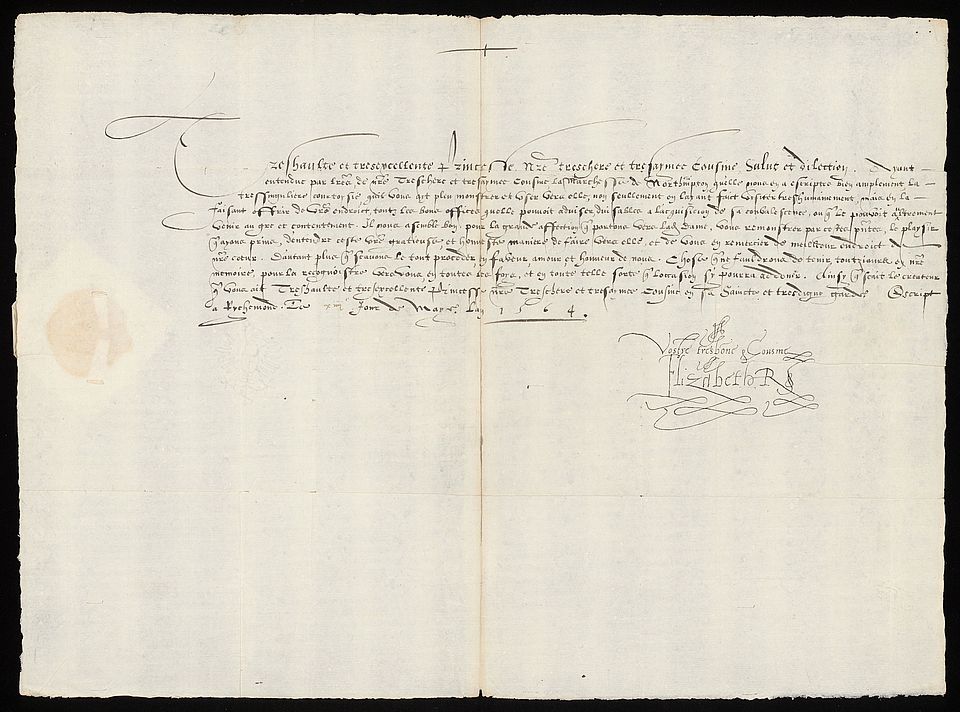 Treshaulte et tresexcellente Princesse Nre treschere et tresaymee Cousine Salut et dilection. Ayant
entendue par lres de nre Treschere et tresaymee Cousine la Marchesse de Northmpton quelle nous en a escriptes bien amplement la
tressinguliere courtoisie, quil vous a pleu monstrer et user vers elle, non seullement en layant faict visiter treshumainement, mais en la
faisant offrir de vre endroict, touts les bons offices quelle pouvoit adviser duisables a lacquisicion de sa convalescence, ou q le pouvoit aultrement
venir au gre et contentement. Il nous a semble bon, pour la grande affection q portons vers lad Dame, vous remonstrer par cestes pntes, le plaisir
q avons prins, dentendre ceste vre gratieuse et honneste maniere de faire vers elle, et de vous en remercier de meilleur endroict de
nre coeur. Daultant plus q scavons le tout proceder en faveur amour et honneur de nous. Chose q ne fauldrons de tenir tousjours en nre
memoire, pour la recognoistre vers vous en toutes les foys, et en toute telle sorte q loccasion sy pourra advenir. Ainsy q scait le createur
q vous ait Treshaulte et tresexcellente Princesse nre Treschere et tresaymee Cousine en sa Saincte et tresdigne garde. Escript
a Rychemonde Le Jour de May Lan 1564.
Vostre tresbone Cousine
Elizabeth R